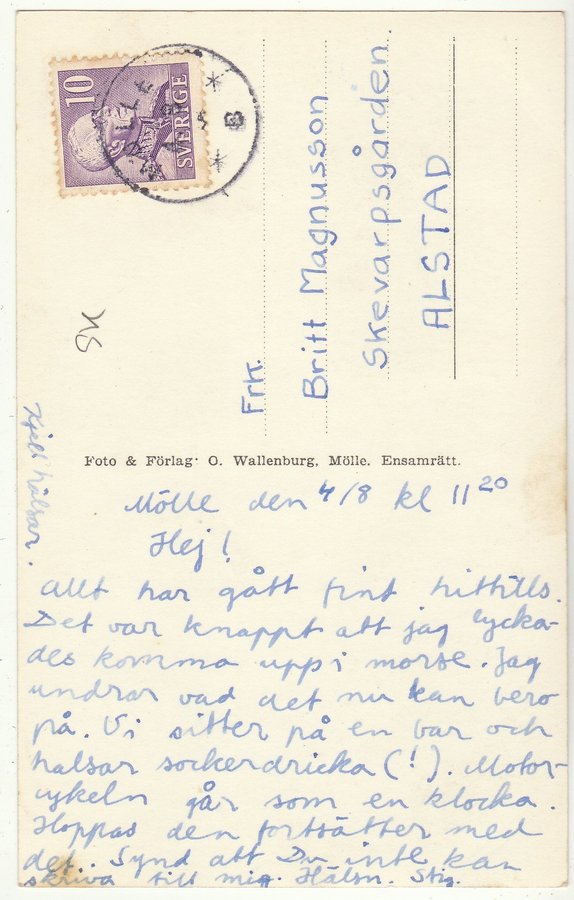 10
SVERIGE
MÖLLE
Frk.
Britt Magnusson
Skevarpsgården.
ALSTAD
Foto & Förlag: O. Wallenburg, Mölle. Ensamrätt.
Mölle den 4/8 kl 11 20
Hej!
Allt har gått fint hittills.
Det var knappt att jag lycka-
des komma upp i morse. Jag
undrar vad det nu kan bero
på. Vi sitter på en bar och
halsar sockerdricka (!). Motor-
cykeln går som en klocka.
Hoppas den fortsätter med
det. Synd att Du inte kan
skriva till mig. Hälsn. Stig.
Kjell hälsar.